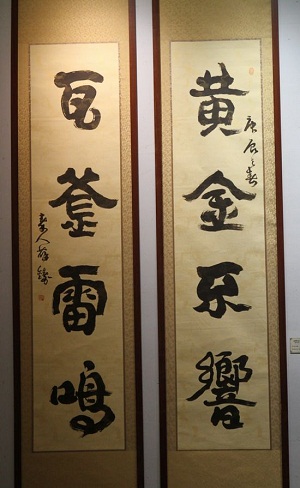 黄金不響
庚辰之春
瓦釜雷鳴